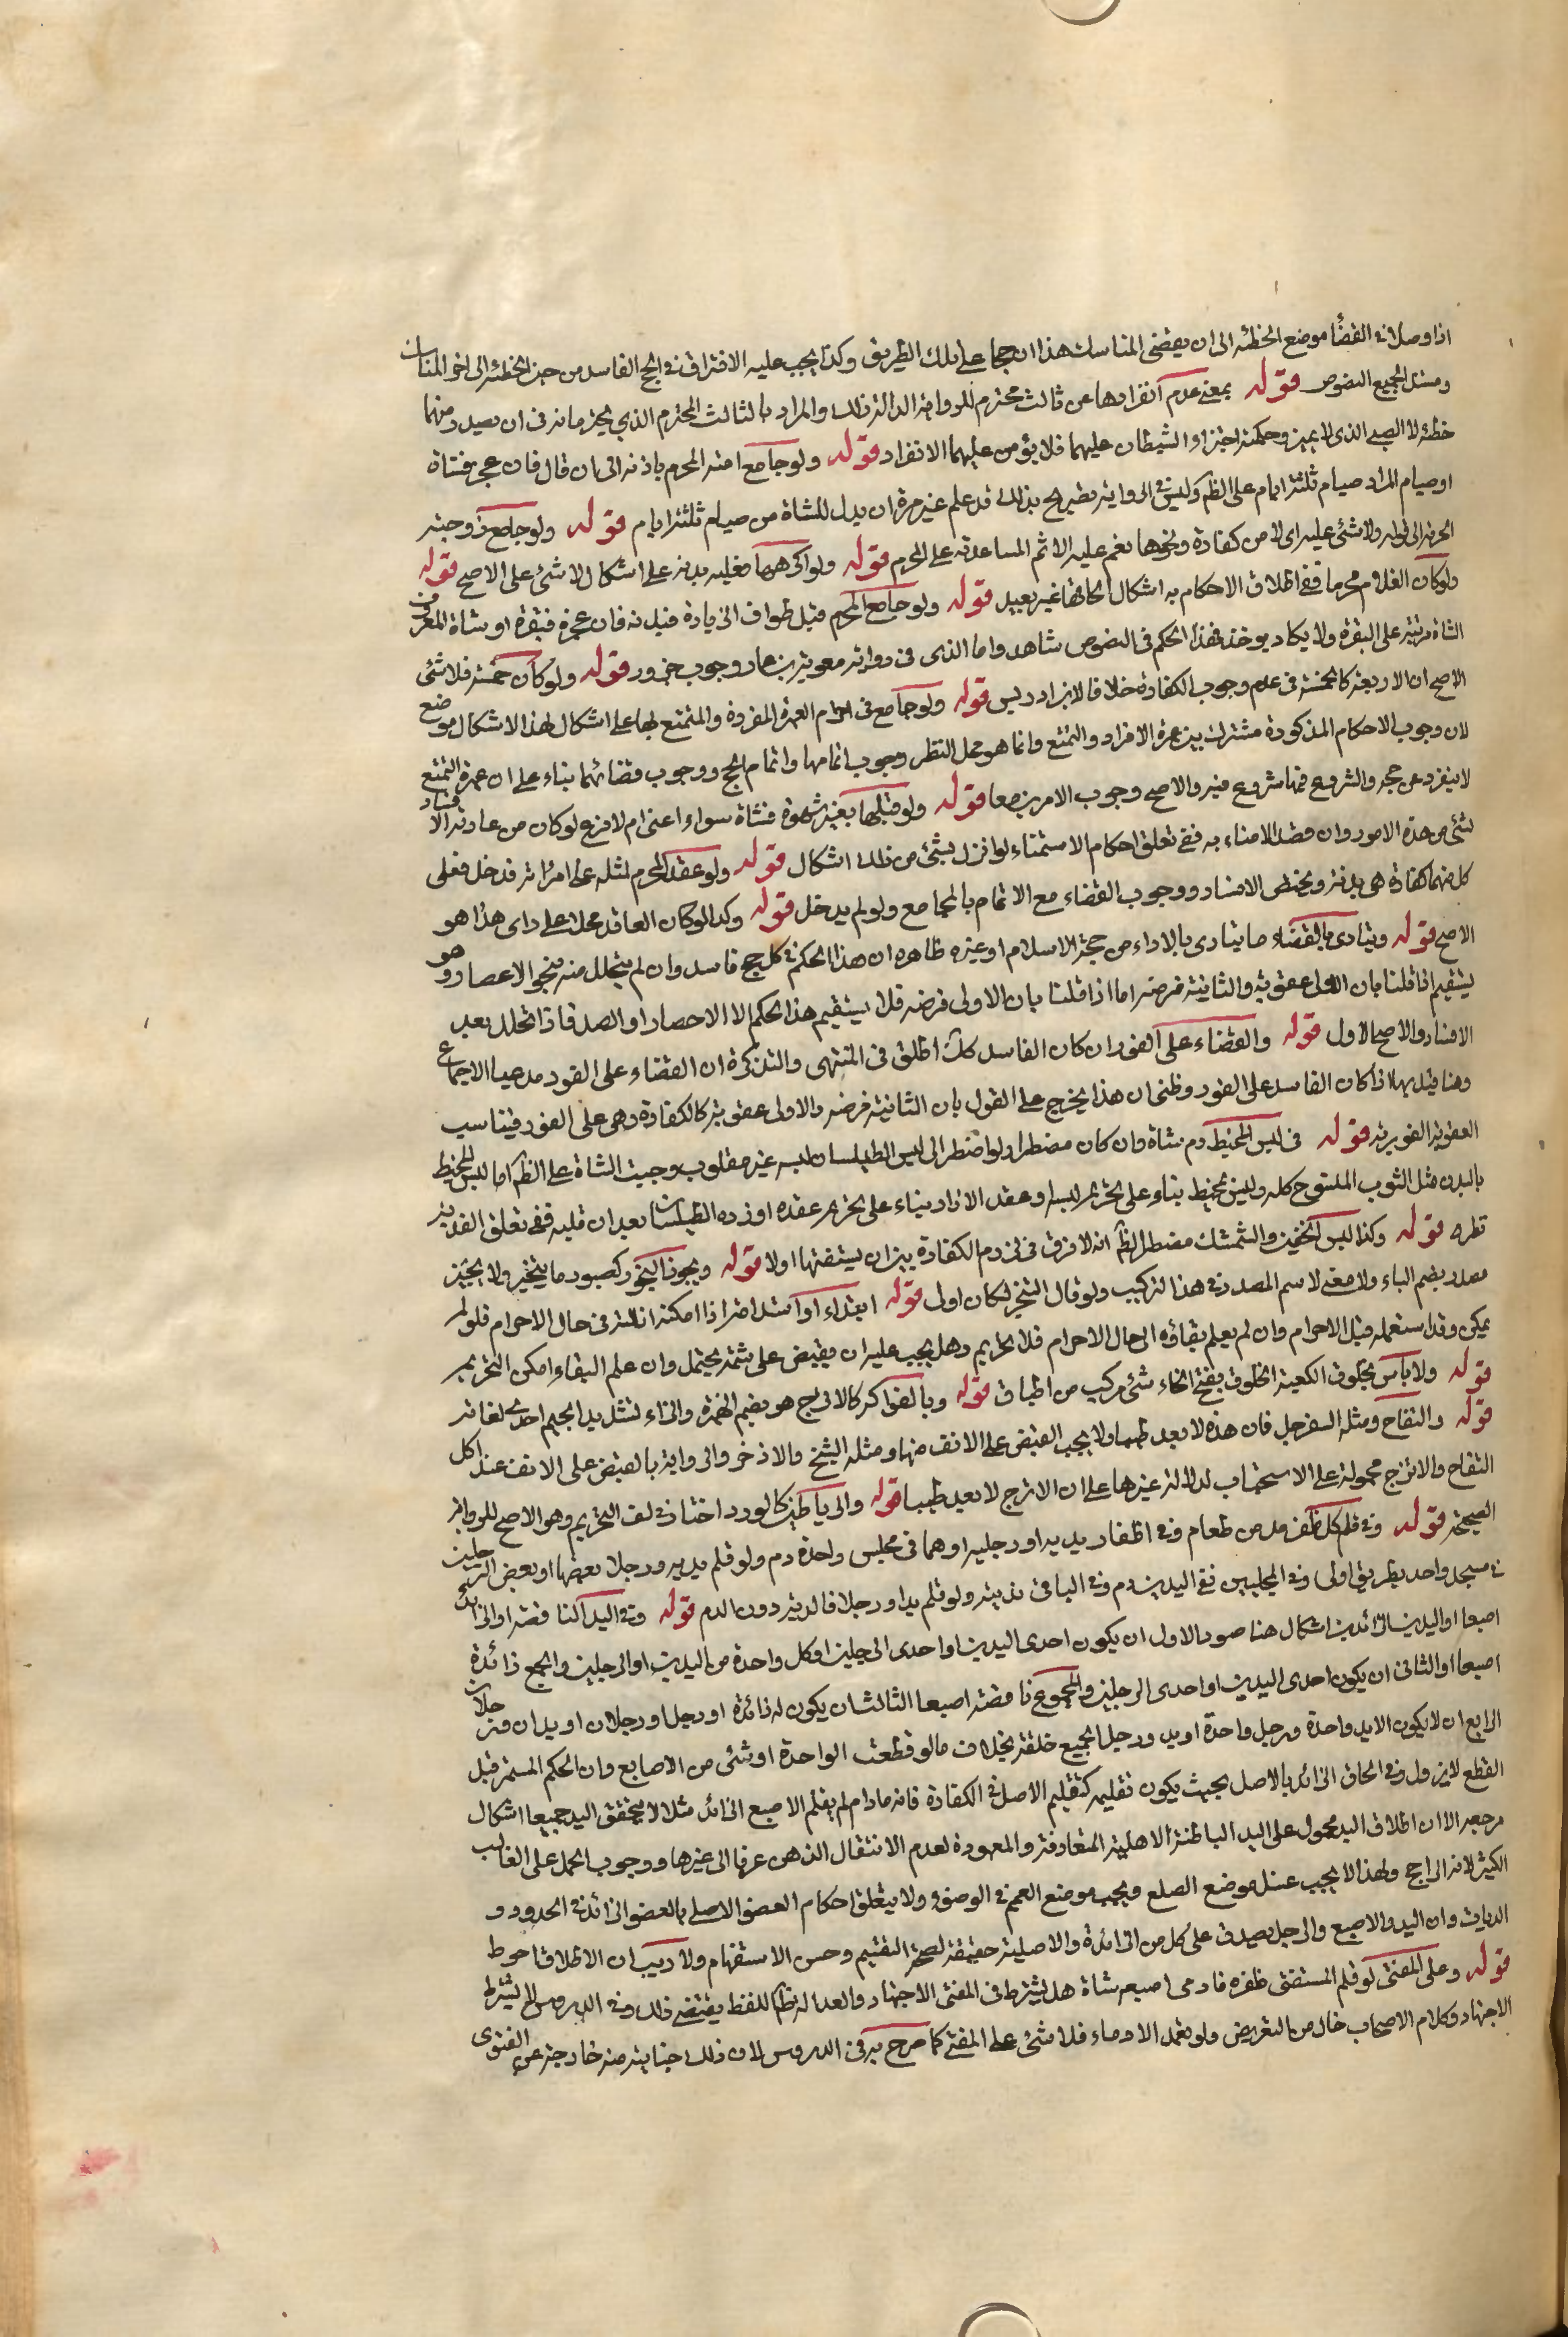 اذا وصلا في القضأ موضع الخطئه الى ان يقضى المناسك هذا ان حجا على تلك الطريق وكذا يجب عليه الافتراق في الحج الفاسد من حين الخطئه الى اخر المناسك
ومستند الجميع النصوص قوله بمعنى عدم انفرادهما عن ثالث محترم للرواية الدالة على ذلك والمراد بالثالث المحترم الذي يحترمانه في ان يصدر منهما
خطئه لا الصبي الذي لا يميز وحكمته اجتزاؤ الشيطان عليهما فلا يؤمن عليهما الانفراد قوله ولو جامع امته المحرم باذنه الى ان قال فان عجز فشاة
او صيام المراد صيام ثلثة ايام على الظ وليس في الرواية تصريح بذلك قد علم غير مرة ان بدل للشاة من صيام ثلثة ايام قوله ولو جامع زوجته
الحرم الى قوله ولا شئ عليه اى لا من كفارة ونحوها نعم عليه الاثم المساعدته على المحرم قوله ولو اكرهها فعليه بدنة على اشكال لا شئ على الاصح قوله
ولو كان الغلام محرما ففي اطلاق الاحكام به اشكال الحاقها غير بعيد قوله ولو جامع المحرم قبل طواف الزيادة فبدنة فان عجز فبقرة او شاة المعروف
الشاة مرتبة على البقرة ولا يكاد يوجد لهذا الحكم في النصوص شاهد واما الذى في رواية معوية بن عمار وجوب جزور قوله ولو كان خمسة فلا شئ
الاصح ان الاربعة كالخمسة في عدم وجوب الكفارة خلافا لابن ادريس قوله ولو جامع في احرام العمرة المفردة والمتمتع بها على اشكال هذا الاشكال موضع
لان وجوب الاحكام المذكورة مشترك بين عمرة الافراد والتمتع وانما هو محل النظر وجوب اتمامها واتمام الحج ووجوب قضائهما بناء على ان عمرة التمتع
لا ينفرد عن حجه والشروع فيها شروع فيه والاصح وجوب الامرين معا قوله ولو قبلها بغير شهوة فشاة سواء امنى ام لا فرع لو كان من عادته الامناء
لشئ من هذه الامور وان قصد الامناء به ففي تعلق احكام الاستمناء لو انزل بشئ من ذلك اشكال قوله ولو عقد المحرم لمثله على امراة فدخل فعلى
كل منهما كفارة هى بدنة ويختص الافساد ووجوب القضاء مع الاتمام بالمجامع ولو لم يدخل قوله وكذا لو كان العاقد محلا على راى هذا هو
الاصح قوله ويتادى بالقضاء ما يتادى بالاداء من حجة الاسلام او غيره ظاهره ان هذا الحكم في كل حج فاسد وان لم يتحلل منه بنحو الاحصار وهو
يستقيم اذا قلنا بان الاولى عقوبة والثانية فرضه اما اذا قلنا بان الاولى فرضه فلا يستقيم هذا الحكم الا الاحصار او الصد فاذا تحلل بعد
الافساد والاصح الاول قوله والقضاء على الفور ان كان الفاسد كك اطلق في المنتهى والتذكرة ان القضاء على الفور مدعيا الاجماع
وهنا قيد بها اذا كان الفاسد على الفور وظنى ان هذا يخرج على القول بان الثانية فرضه والاولى عقوبة كالكفارة وهى على الفور فيناسب
العقوبة الفورية قوله في لبس المخيط دم شاة وان كان مضطرا ولو اضطر الى لبس الطيلسان لبسه غير مقلوب وجبت الشاة على الظ اما لبس المحيط
بالبدن مثل الثوب المنسوج كله وليس بمخيط بناء على تحريم لبسه او عقد الازار بناء على تحريم عقده او زره الطيلسان بعد ان قلبه ففي تعلق الفدية
نظر قوله وكذا لبس الخفين والشمشك مضطرا الظ انه لا فرق في لزوم الكفارة بين ان يشقهما اولا قوله ويجوز البخور كصبور ما يتبخر ولا يجئ
مصدر بضم الباء ولا معنى لاسم المصدر في هذا التركيب ولو قال التبخر لكان اولى قوله ابتداء او استدامة اذا امكنه ازالته في حال الاحرام فلو لم
يمكن وقد استعمله قبل الاحرام وان لم يعلم بقاؤه الى حال الاحرام فلا تحريم وهل يجب عليه ان يقبض على شمه يحتمل وان علم البقاء امكن التحريم
قوله ولا بأس بخلوق الكعبة الخلوق بفتح الخاء شئ مركب من اطياب قوله وبالفواكه كالاترج هو بضم الهمزة والتاء لتشديد الجيم احدى لغاته
قوله والتفاح ومثله السفرجل فان هذه لا يعد طيبا ولا يجب القبض على الانف منها ومثله الشيخ والاذخر والرواية بالقبض على الانف عند اكل
التفاح والاترج محمولة على الاستحباب لدلالة غيرها على ان الاترج لا يعد طيبا قوله والرياحين كالورد اختار في لف التحريم وهو الاصح للرواية
الصحيحة قوله وفي قلم كل ظفر مد من طعام وفي اظفار يديه او رجليه او هما في مجلس واحد دم ولو قلم يديه ورجلا بعضها او بعض الرجلين
في مسجد واحد بطريق اولى وفي المجلسين ففي اليدين دم وفي الباقى فدية ولو قلم يدا ورجلا فالدية دون الدم قوله وفي اليد الناقصة او الزائدة
اصبعا او اليدين الزائدين اشكال هنا صور الاول ان يكون احدى اليدين او احدى الرجلين او كل واحدة من اليدين او الرجلين والجميع زائدة
اصبعا او الثانى ان يكون احدى اليدين او احدى الرجلين والمجموع ناقصة اصبعا الثالث ان يكون له زائدة او رجل او رجلان او يدان ورجلان
الرابع ان لا يكون الا يد واحدة ورجل واحدة او يد ورجل الجميع خلقة بخلاف ما لو قطعت الواحدة او شئ من الاصابع وان الحكم المستمر قبل
القطع لا يزول وفي الحاق الزائد بالاصل بحيث يكون تقليمه كتقليم الاصل في الكفارة فانه مادام لم يقلم الاصبع الزائد مثلا لا يتحقق اليد جميعا اشكال
مرجعه الا ان اطلاق اليد محمول على اليد الباطنة الاهلية المتعارفة والمعهودة لعدم الانتقال الذهن عرفا الى غيرها ووجوب الحمل على الغالب
الكثير لانه الراجح ولهذا لا يجب غسل موضع الصلع ويجب موضع الغمم في الوضوء ولا يتعلق احكام العضو الاصلى بالعضو الزائد في الحدود و
الديات وان اليد والاصبع والرجل يصدق على كل من الزائدة والاصلية حقيقة لصحة التقسيم وحسن الاستفهام ولا ريب ان الاطلاق احوط
قوله وعلى المفتى لو قلم المستفتى ظفره فادمى اصبعه شاة هل يشترط في المفتى الاجتهاد والعدالة ظ اللفظ يقتضى ذلك وفي الدروس لا يشترط
الاجتهاد وكلام الاصحاب خال من التعريض ولو تعمد الادماء فلا شئ على المفتى كما صرح به في الدروس لان ذلك جناية منه خارجة عن الفتوى